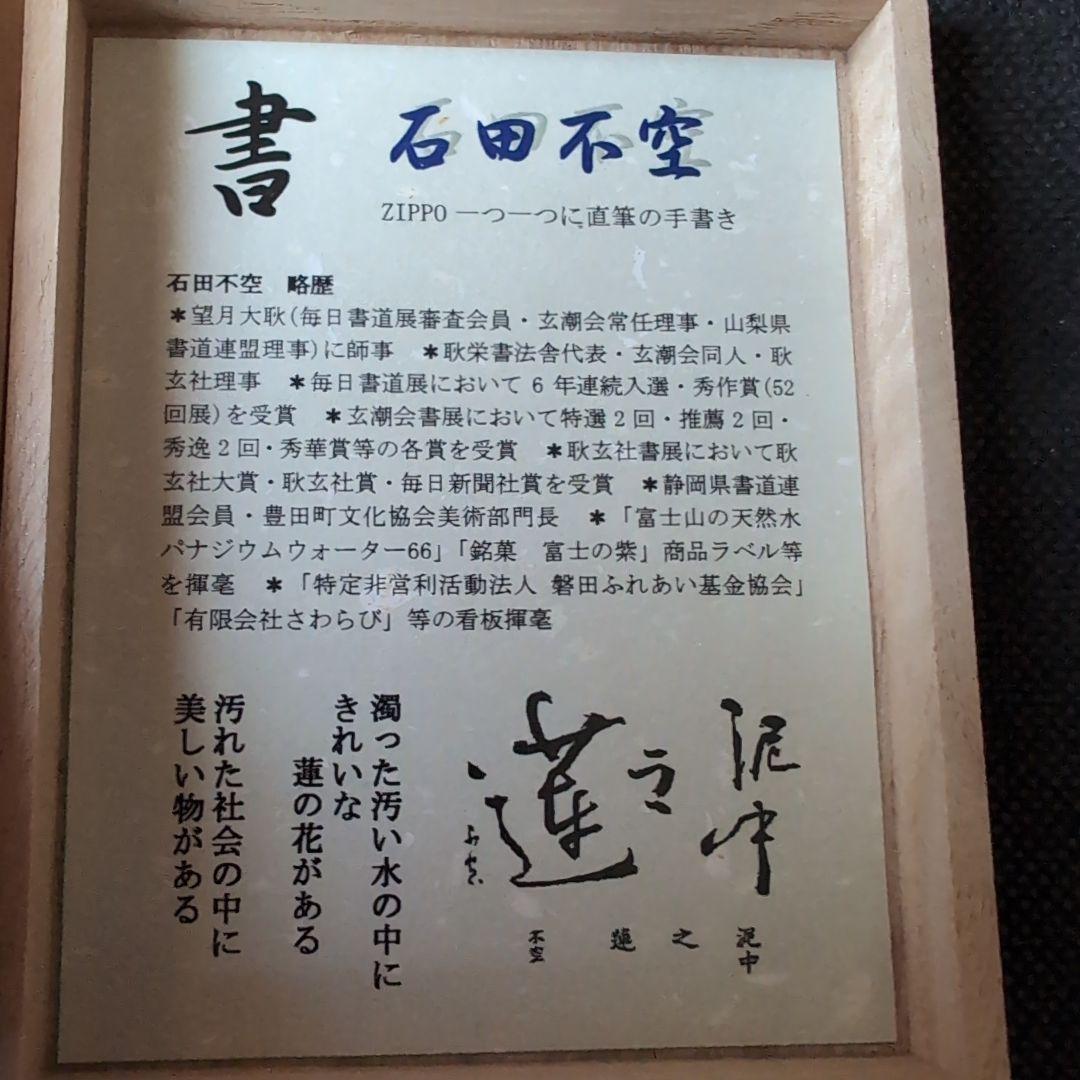 書
石田不空
ZIPPO 一つ一つに直筆の手書き
石田不空　略歴
＊望月大耿(毎日書道展審査会員・玄潮会常任理事・山梨県
書道連盟理事)に師事　＊耿栄書法舎代表・玄潮会同人・耿
玄社理事　＊毎日書道展において 6 年連続入選・秀作賞(52
回展)を受賞　＊玄潮会書展において特選 2 回・推薦 2 回・
秀逸 2 回・秀華賞等の各賞を受賞　＊耿玄社書展において耿
玄社大賞・耿玄社賞・毎日新聞社賞を受賞　＊静岡県書道連
盟会員・豊田町文化協会美術部門長　＊「富士山の天然水
バナジウムウォーター66」「銘菓　富士の紫」商品ラベル等
を揮毫　＊「特定非営利活動法人 磐田ふれあい基金協会」
「有限会社さわらび」等の看板揮毫
泥中
之
蓮
不空
泥中
之
蓮
不空
濁った汚い水の中に
きれいな
蓮の花がある
汚れた社会の中に
美しい物がある